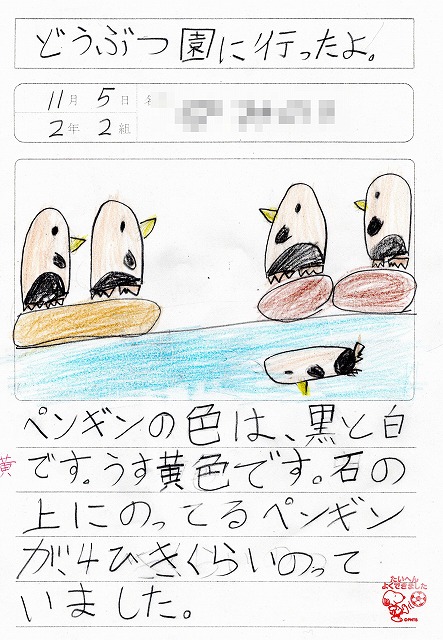 どうぶつ園に行ったよ。
11月5日
2年2組
ペンギンの色は、黒と白
です。うす黄色です。石の
黄
上にのってるペンギン
が、4ひきくらいのって
いました。
たいへん
よくできました